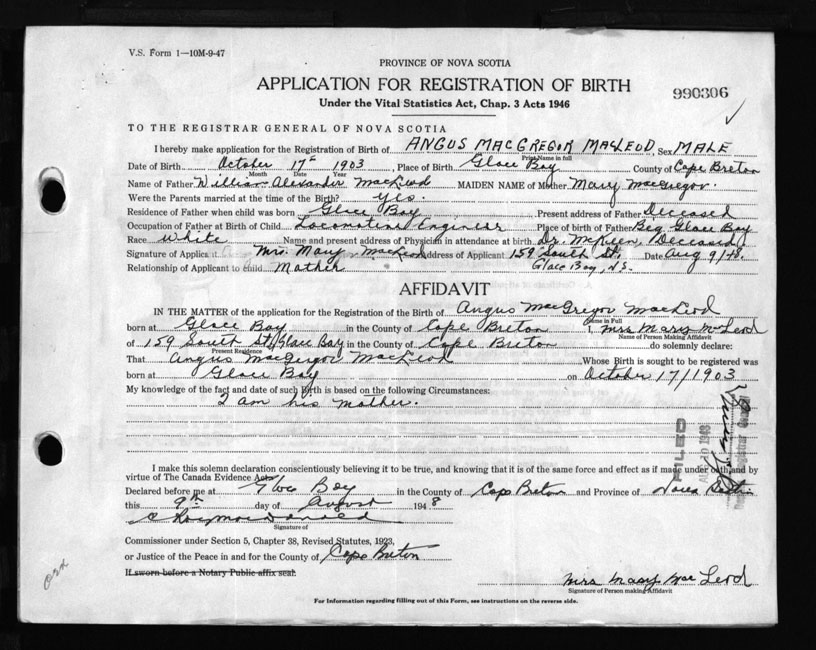 V.S. Form 1—10M-9-47
PROVINCE OF NOVA SCOTIA
APPLICATION FOR REGISTRATION OF BIRTH
990306
Under the Vital Statistics Act, Chap. 3 Acts 1946
TO THE REGISTRAR GENERAL OF NOVA SCOTIA
I hereby make application for the Registration of Birth of ANGUS MACGREGOR MACLEOD, Sex MALE
Print Name in full
Date of Birth October 17th 1903, Place of Birth Glace Bay County of Cape Breton
Month Date Year
Name of Father William Alexander MacLeod MAIDEN NAME of Mother Mary MacGregor.
Were the Parents married at the time of the Birth? Yes.
Residence of Father when child was born Glace Bay Present address of Father Deceased
Occupation of Father at Birth of Child Locomotive Engineer Place of birth of Father Glace Bay
Race White Name and present address of Physician in attendance at birth Dr. (Deceased)
Signature of Applicant Mrs. Mary MacLeod Address of Applicant 159 South St. Date Aug 9/48.
Relationship of Applicant to child Mother Glace Bay, N.S.
AFFIDAVIT
IN THE MATTER of the application for the Registration of the Birth of Angus MacGregor MacLeod
Name in Full
born at Glace Bay in the County of Cape Breton I, Mrs Mary McLeod
Name of Person Making Affidavit
of 159 South St. Glace Bay in the County of Cape Breton do solemnly declare:
Present Residence
That Angus MacGregor MacLeod Whose Birth is sought to be registered was
born at Glace Bay on October 17/1903
My knowledge of the fact and date of such Birth is based on the following Circumstances:
I am his mother.
FILED
AUG 10 1948
I make this solemn declaration conscientiously believing it to be true, and knowing that it is of the same force and effect as if made under oath and by
virtue of The Canada Evidence Act.
Declared before me at Glace Bay in the County of Cape Breton and Province of Nova Scotia
this 9th day of August 1948
Signature of
Commissioner under Section 5, Chapter 38, Revised Statutes, 1923,
or Justice of the Peace in and for the County of Cape Breton
If sworn before a Notary Public affix seal.
Mrs Mary MacLeod
Signature of Person making Affidavit
For Information regarding filling out of this Form, see instructions on the reverse side.